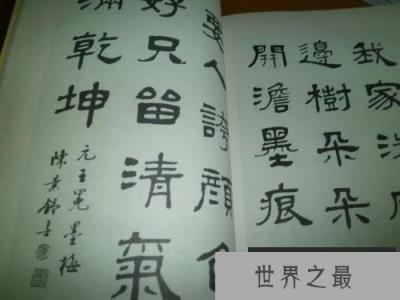 我家洗
邊樹朵朵
開澹墨痕
要人誇顏色
好只留清氣
滿乾坤
元王冕墨梅
陳景舒書
世界之最